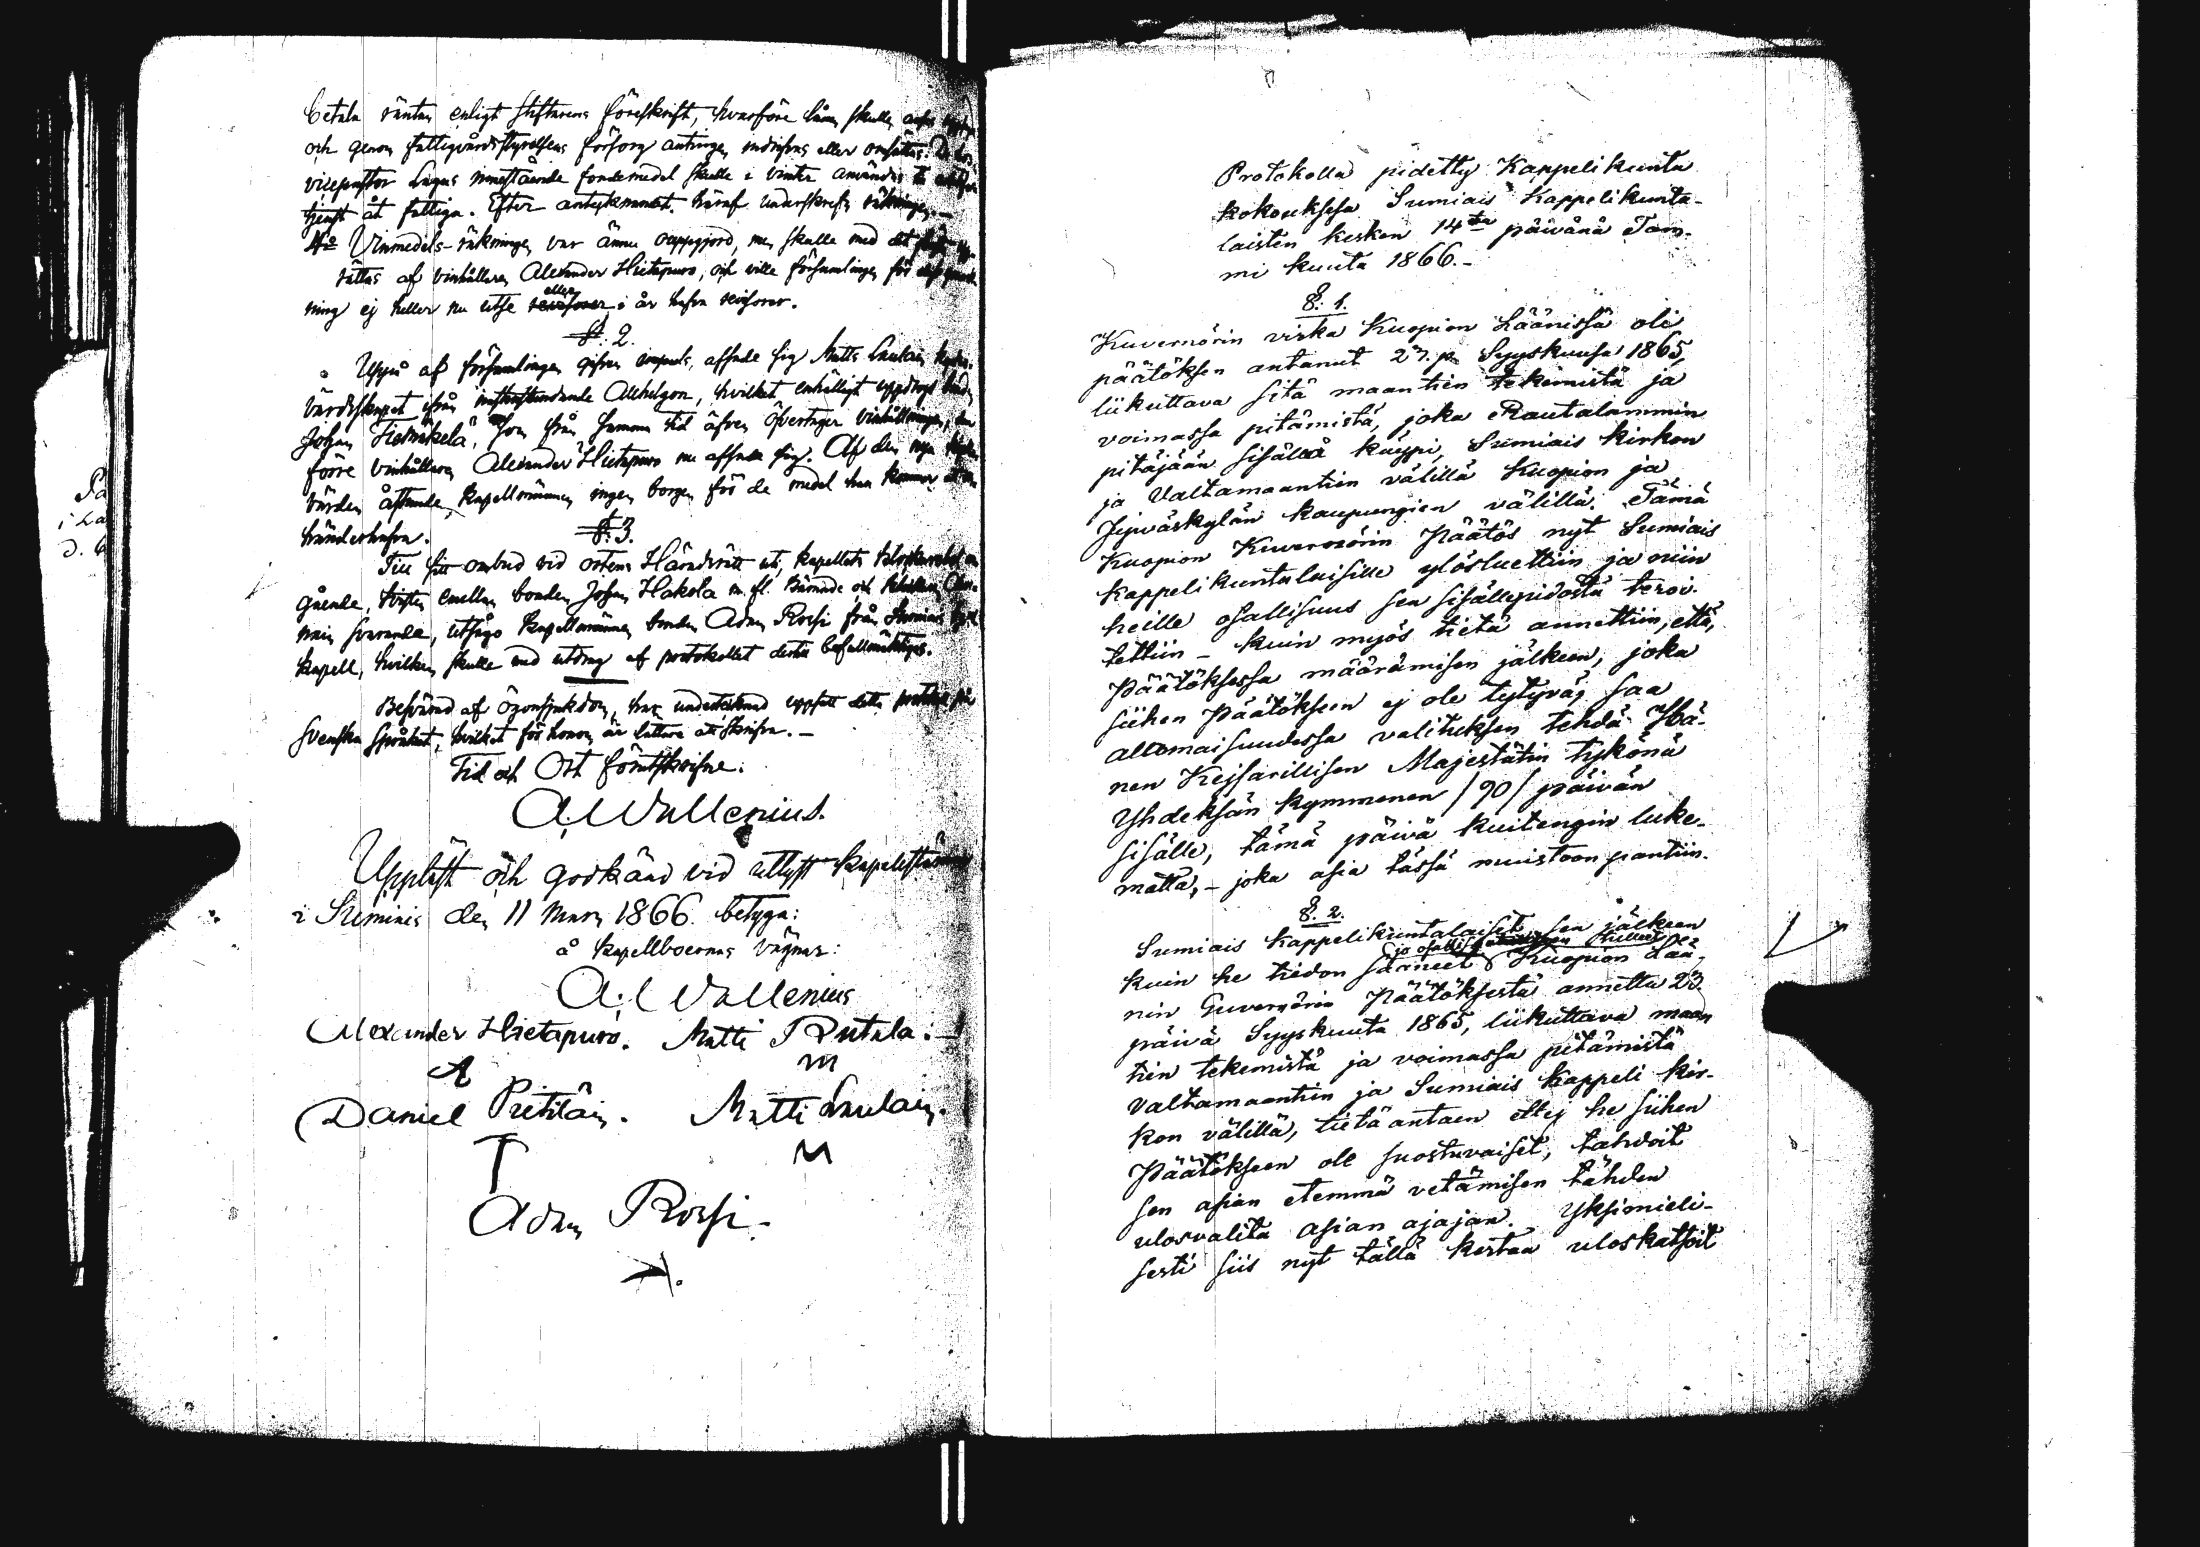 betala räntan enligt stiftarens föreskrift, hvarföre lånen skulle
och genom fattigvårdsstyrelsens försorg antingen indrifvas eller omsättas.
vicepastor Lagus innestående fondemedel skulle i vinter användas till
tjenst åt fattiga. Efter antecknandet häraf underskrefs räkningen.
4o Vinmedels-räkningen var ännu ouppgjord, men skulle med det
rättas af vinhållaren Alexander Hietapuro, och ville församlingen för dess
ning ej heller nu utse revisorer eller i år hafva revisorer.
§. 2.
Uppå af församlingen gifven afsade sig Matts Laulain
värdskapet ifrån instundande Allhelgon, hvilket enhälligt uppdrogs
Johan Tietäväkelä, som från samma tid äfven öfvertager vinhållningen,
förre vinhållaren Alexander Hietapuro nu afsade sig. Af den nya
värden åstunde kapellmännen ingen borgen för de medel han kommer att
händerhafva.
§. 3.
Till sitt ombud vid ortens Häradsrätt uti, kapellets
gående, tvisten emellan bonden Johan Hakola m. fl. kärande och
svarande, utsågo kapellmännen bonden Adam Rossi från Sumiais
kapell, hvilken skulle med utdrag af protokollet derta befullmäktigas.
Besvärad af ögonsjukdom, har undertecknad uppsatt detta protokoll på
Svenska Språket, hvilket för honom är lättare att skrifva.
Tid och Ort förutskrifne:
A. Wallenius.
Uppläst och godkänd vid utlyst kapellstämma
i Sumiais den 11 Mars 1866. betyga:
å kapellboernas vägnar:
A. Wallenius
Alexander Hietapuro. Matti Rutala.
A M
Daniel Pietiläin. Matti Laulain.
T M
Adam Rossi.
Protokolla pidetty Kappelikunta
kokouksesa Sumiais Kappelikunta-
laisten kesken 14ta päivänä Tam-
mi kuuta 1866.-
§. 1.
Kuvernörin virka Kuopion Läänissä oli
päätöksen antanut 23. p. Syyskuusa 1865,
liikuttava sitä maantien tekemistä ja
voimassa pitämistä, joka Rautalammin
pitäjään sisällä käypi, Sumiais kirkon
ja Valtamaantien välillä Kuopion ja
Jywäskylän kaupungien välillä. Tämä
Kuopion Kuvernörin Päätös nyt Sumiais
kappelikuntalaisille ylösluettiin ja niin
heille osallisuus sen sisällepidosta teroi-
tettiin - kuin myös tietä annettiin, että,
Päätöksessä määrämisen jälkeen, joka
siihen Päätökseen ej ole tytyväj, saa
allamaisuudessa valituksen tehdä Hä-
nen Kejsarillisen Majestätin tykönä
Yhdeksän kymmenen /90/ päivän
sisälle, tämä päivä kuitengin luke-
matta, - joka asia tässä muistoon pantiin.
§. 2.
Sumiais kappelikuntalaiset, sen jälkeen
kuin he tiedon saaneet Kuopion Lää-
nin Guvernörin Päätöksestä annettu 23.
päivä Syyskuuta 1865, liikuttava maan
tien tekemistä ja voimassa pitämistä
Valtamaantien ja Sumiais kappeli kir-
kon välillä, tietä antaen ettej he siihen
Päätökseen ole suostuvaiset, tahdoit
sen asian etemmä vetämisen tähden
ulosvalita asian ajajan. Yksimieli-
sesti siis nyt tällä kertaa uloskatsoit